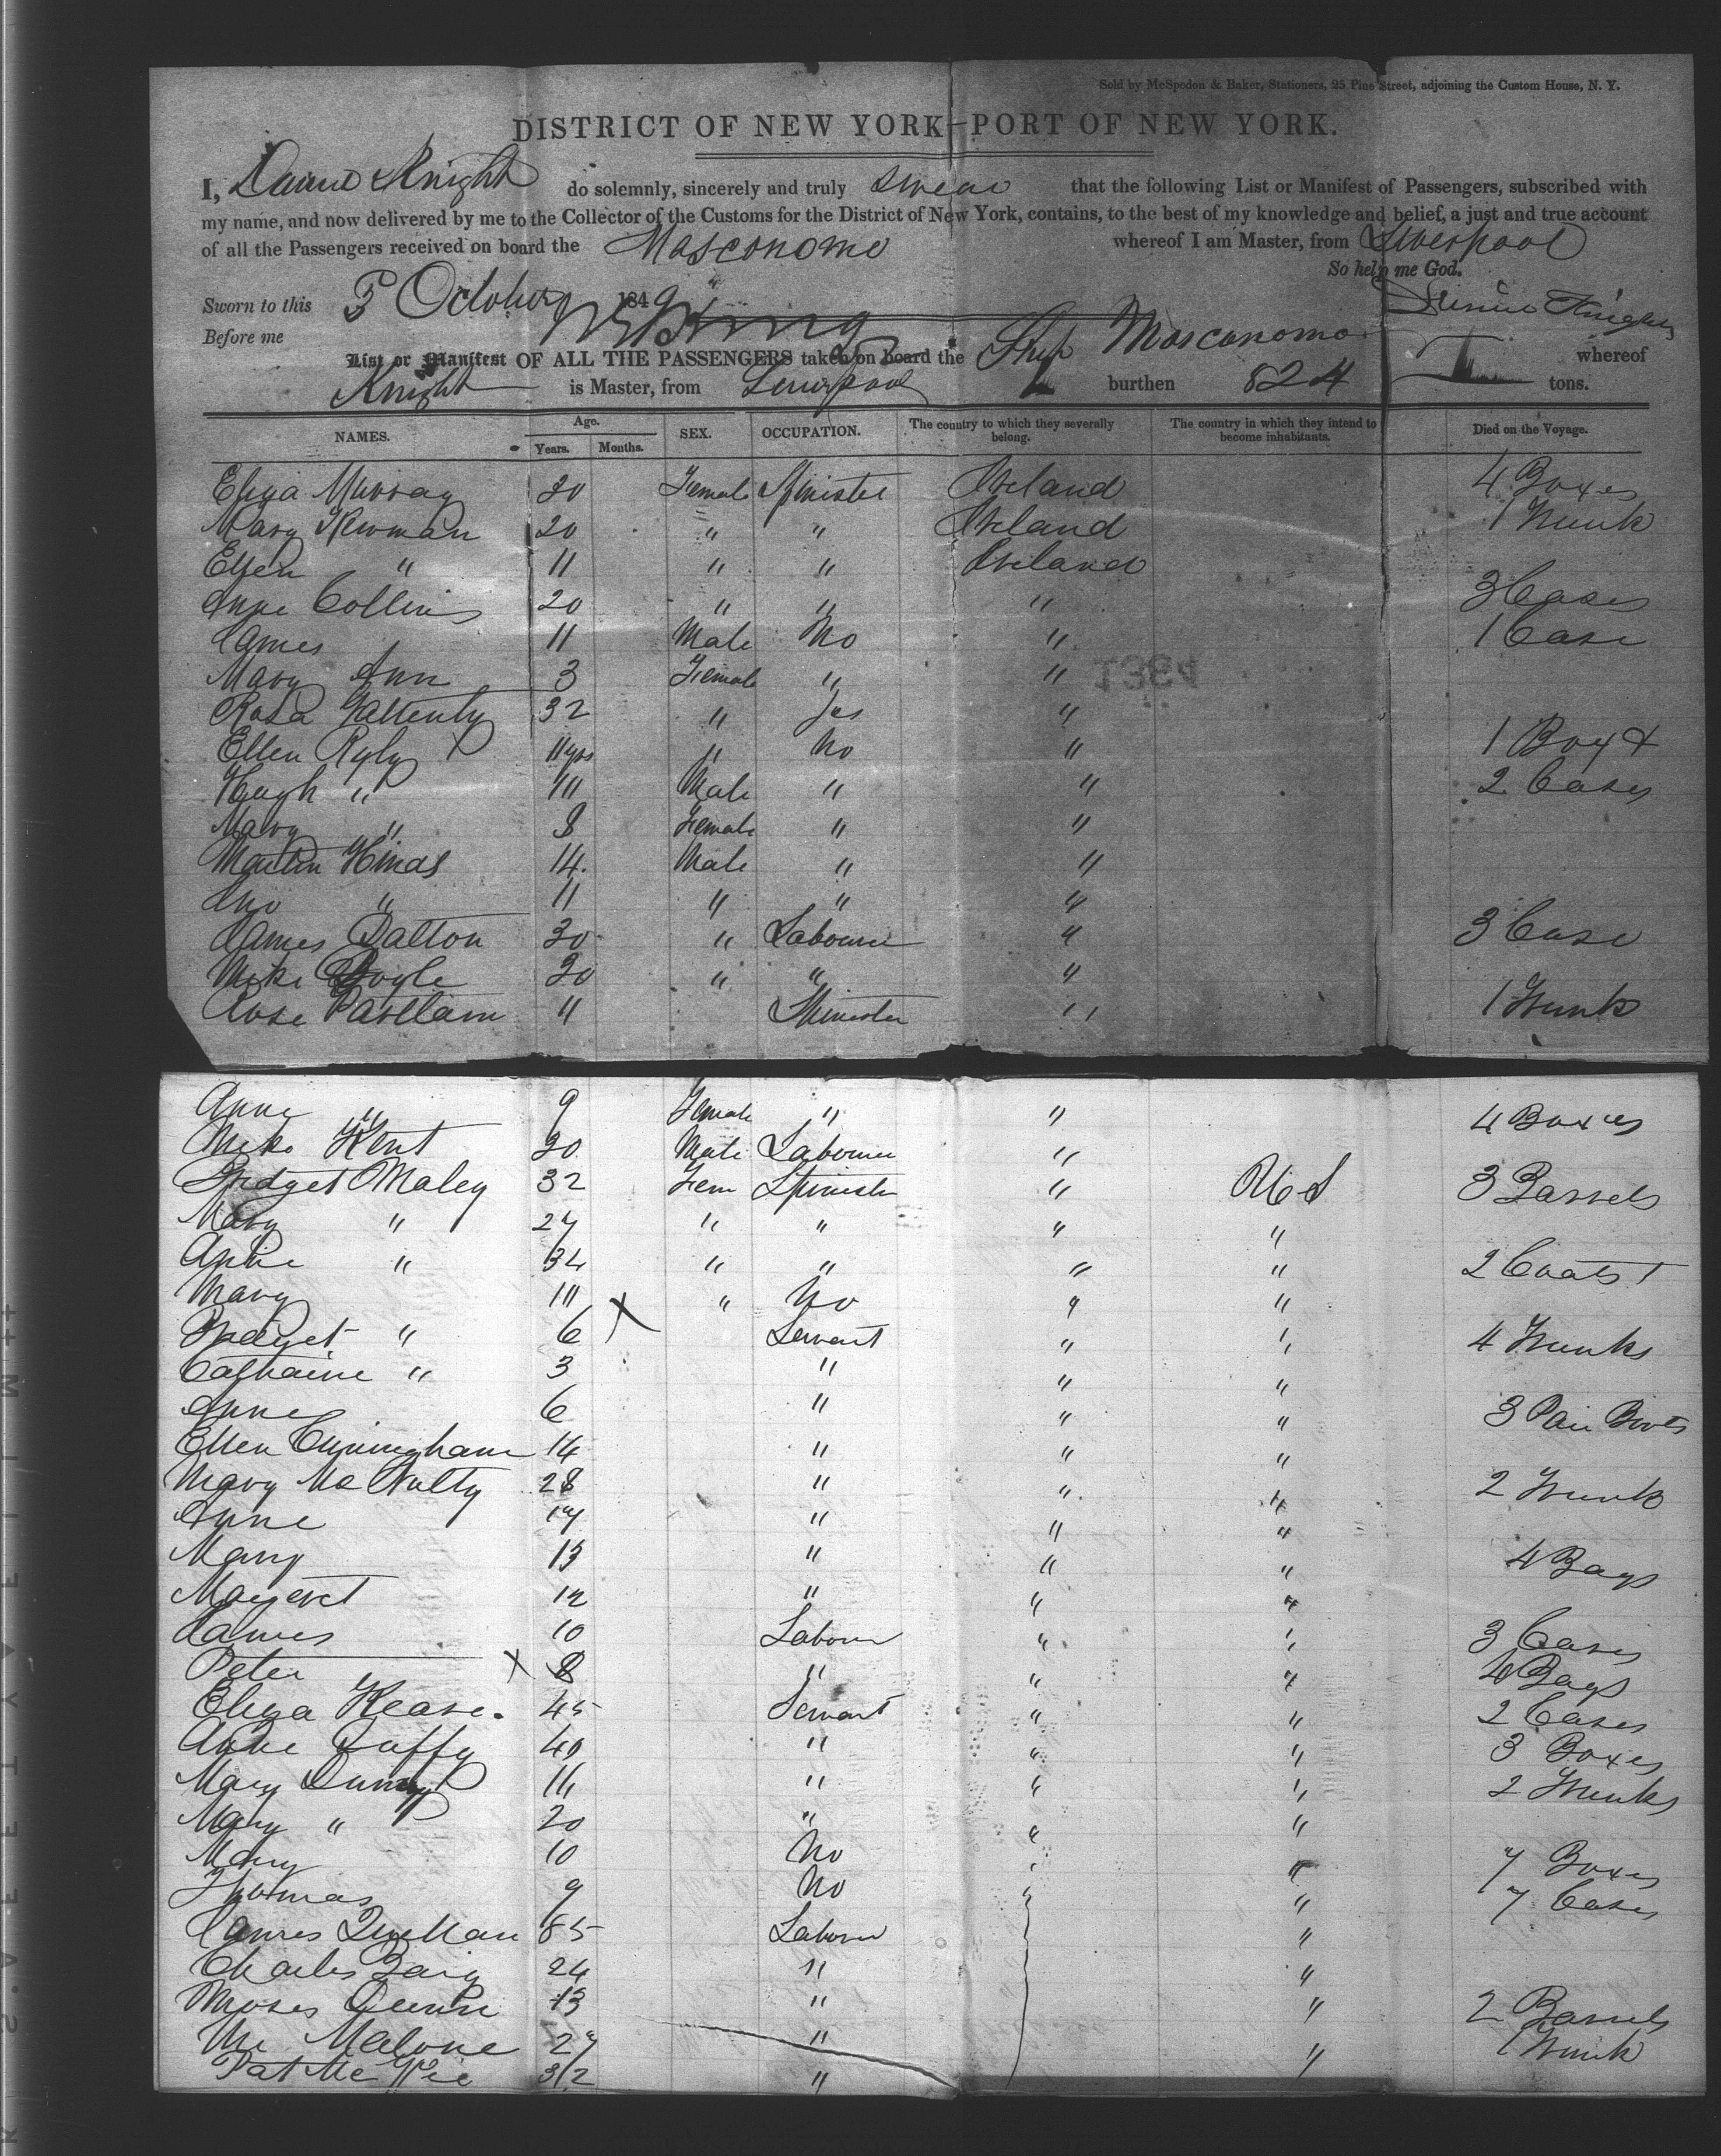 Sold by McSpedon & Baker, Stationers, 25 Pine Street, adjoining the Custom House, N. Y.
DISTRICT OF NEW YORK—PORT OF NEW YORK.
I, Knight do solemnly, sincerely and truly swear that the following List or Manifest of Passengers, subscribed with
my name, and now delivered by me to the Collector of the Customs for the District of New York, contains, to the best of my knowledge and belief, a just and true account
of all the Passengers received on board the Masconomo whereof I am Master, from Liverpool
So help me God.
Sworn to this 3 October 1849 Knight
Before me
List or Manifest OF ALL THE PASSENGERS taken on board the Ship Masconomo whereof
Knight is Master, from Liverpool burthen 824 tons.
NAMES. Age. Years. Months. SEX. OCCUPATION. The country to which they severally belong. The country in which they intend to become inhabitants. Died on the Voyage.
Eliza Murray 20 Female Spinister Ireland 4 Boxes
Mary Newman 20 " " Ireland 1 Trunk
Ellen " 11 " " Ireland
Anne Collins 20 " " " 3 Cases
James 11 Male No " 1 Case
Mary Ann 3 Female " "
Rosa 32 " Yes "
Ellen Ryly 11 yrs " No " 1 Box &
Hugh " 10 Male " " 2 Cases
Mary " 8 Female " "
Martin Hinas 14 Male " "
Jno " 11 " " "
James Dalton 30 " Labourer " 3 Case
Mike Doyle 20 " " "
Rose 11 Spinester " 1 Trunk
Anne " 9 Female " " 4 Boxes
Mike Kent 20 Male Labourer "
Bridget Maley 32 Fem Spinester " U S 3 Barrels
Mary " 27 " " " "
Anne " 34 " " " " 2
Mary 10 " No " "
Bridget " 6 X Servant " " 4 Trunks
Catharine " 3 " " "
Anne 6 " " " 3 Pair Boots
Ellen Cuningham 14 " " "
Mary McNulty 28 " " " 2 Trunk
Anne 17 " " "
Mary 13 " " " 4 Bags
Margeret 12 " " "
James 10 Labour " " 3 Cases
Peter X 8 " " " 4 Bags
Eliza Kease. 45 Servant " " 2 Cases
Anne Duffy 40 " " " 3 Boxes
Mary 16 " " " 2 Trunks
Mary " 20 " " "
Mary 10 No " " 7 Boxes
Thomas 9 No " " 7 Cases
James Labour "
Charles 24 " "
Moses Quinn 13 " " 2 Barrels
Malone 27 " " 1 Trunk
Pat Mc 32 " "